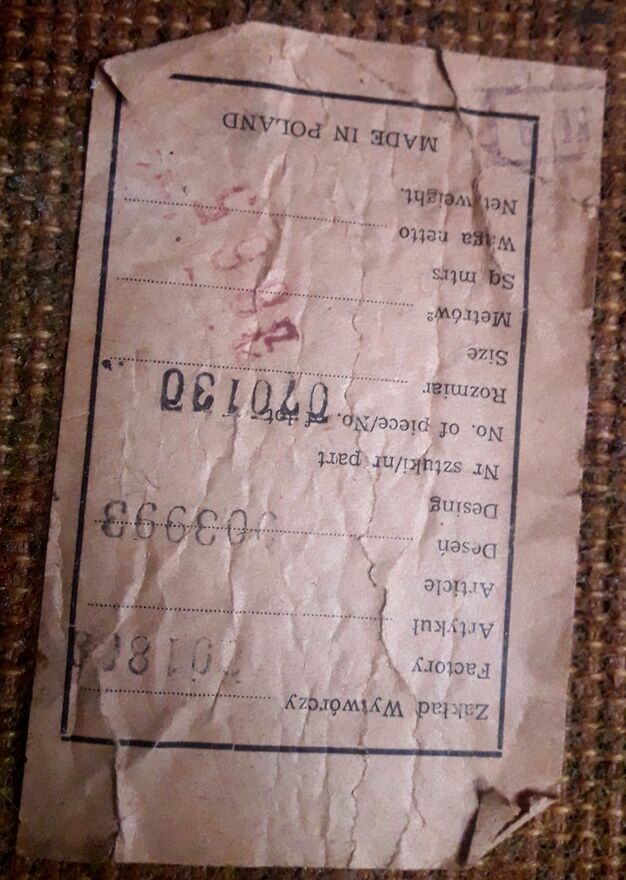 Zakład Wytwórczy
Factory
Artykuł
Article
Deseń
Desing
Nr sztuki/nr part
No. of piece/No. of lot
070130
Rozmiar
Size
Metrów²
Sq mtrs
Waga netto
Net. weight.
MADE IN POLAND